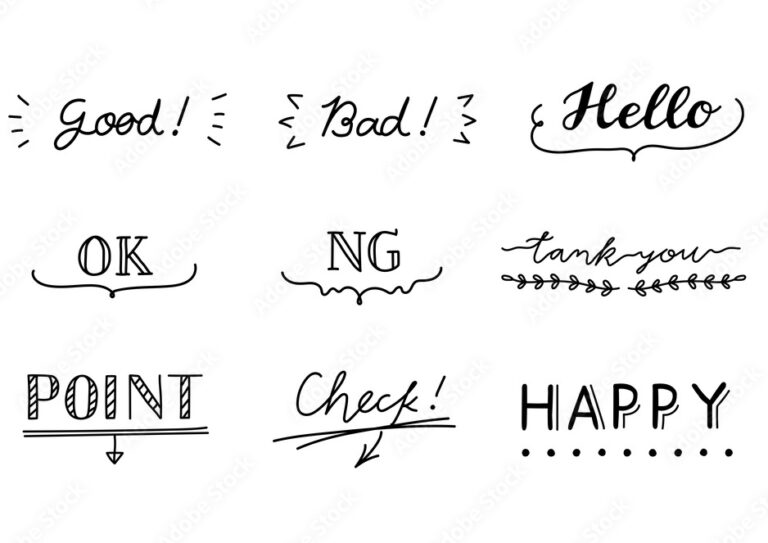 Good!
Bad!
Hello
OK
NG
tank you
POINT
Check!
HAPPY
Adobe Stock